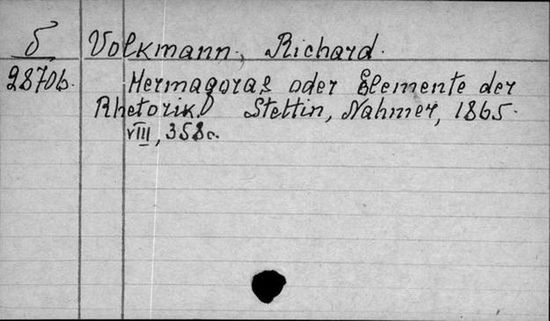 δ Volkmann, Richard.
2870b. Hermagoras oder Elemente der
Rhetorik. Stettin, Nahmer, 1865.
VIII, 358 c.